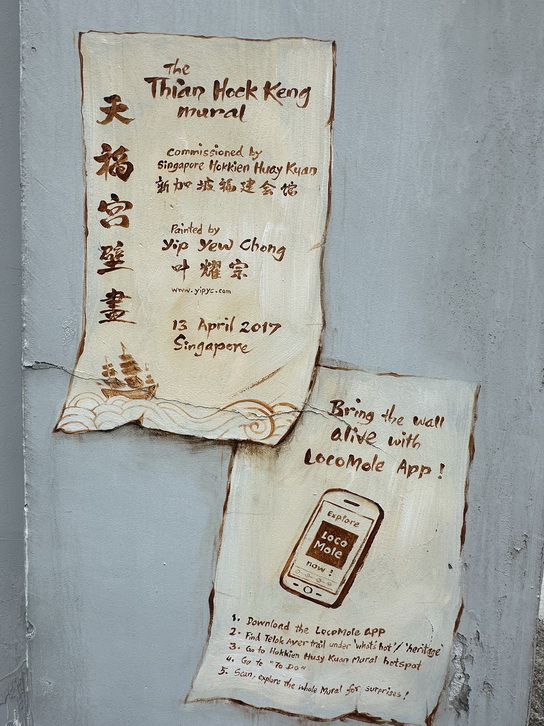 天福宫壁畫
The
Thian Hock Keng
mural
commissioned by
Singapore Hokkien Huay Kuan
新加坡福建会馆
Painted by
Yip Yew Chong
叶耀宗
www.yipyc.com
13 April 2017
Singapore
Bring the wall
alive with
LocoMole App!
Explore
Loco
Mole
now!
1. Download the LocoMole APP
2. Find Telok Ayer trail under 'what's hot'/ 'heritage'
3. Go to Hokkien Huay Kuan Mural hotspot
4. Go to "To Do"
5. Scan, explore the whole Mural for surprises!